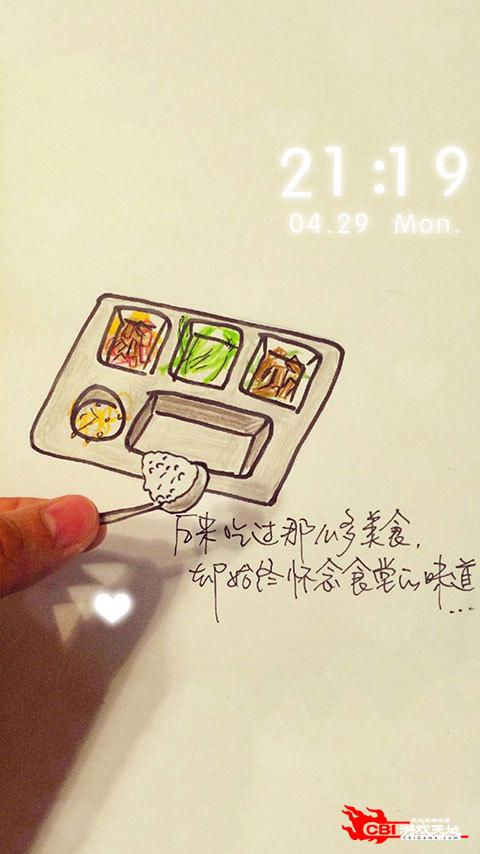 21:19
04.29 Mon.
后来吃过那么多美食,
却始终怀念食堂的味道
...
CBI游戏天地
CBIGame.com